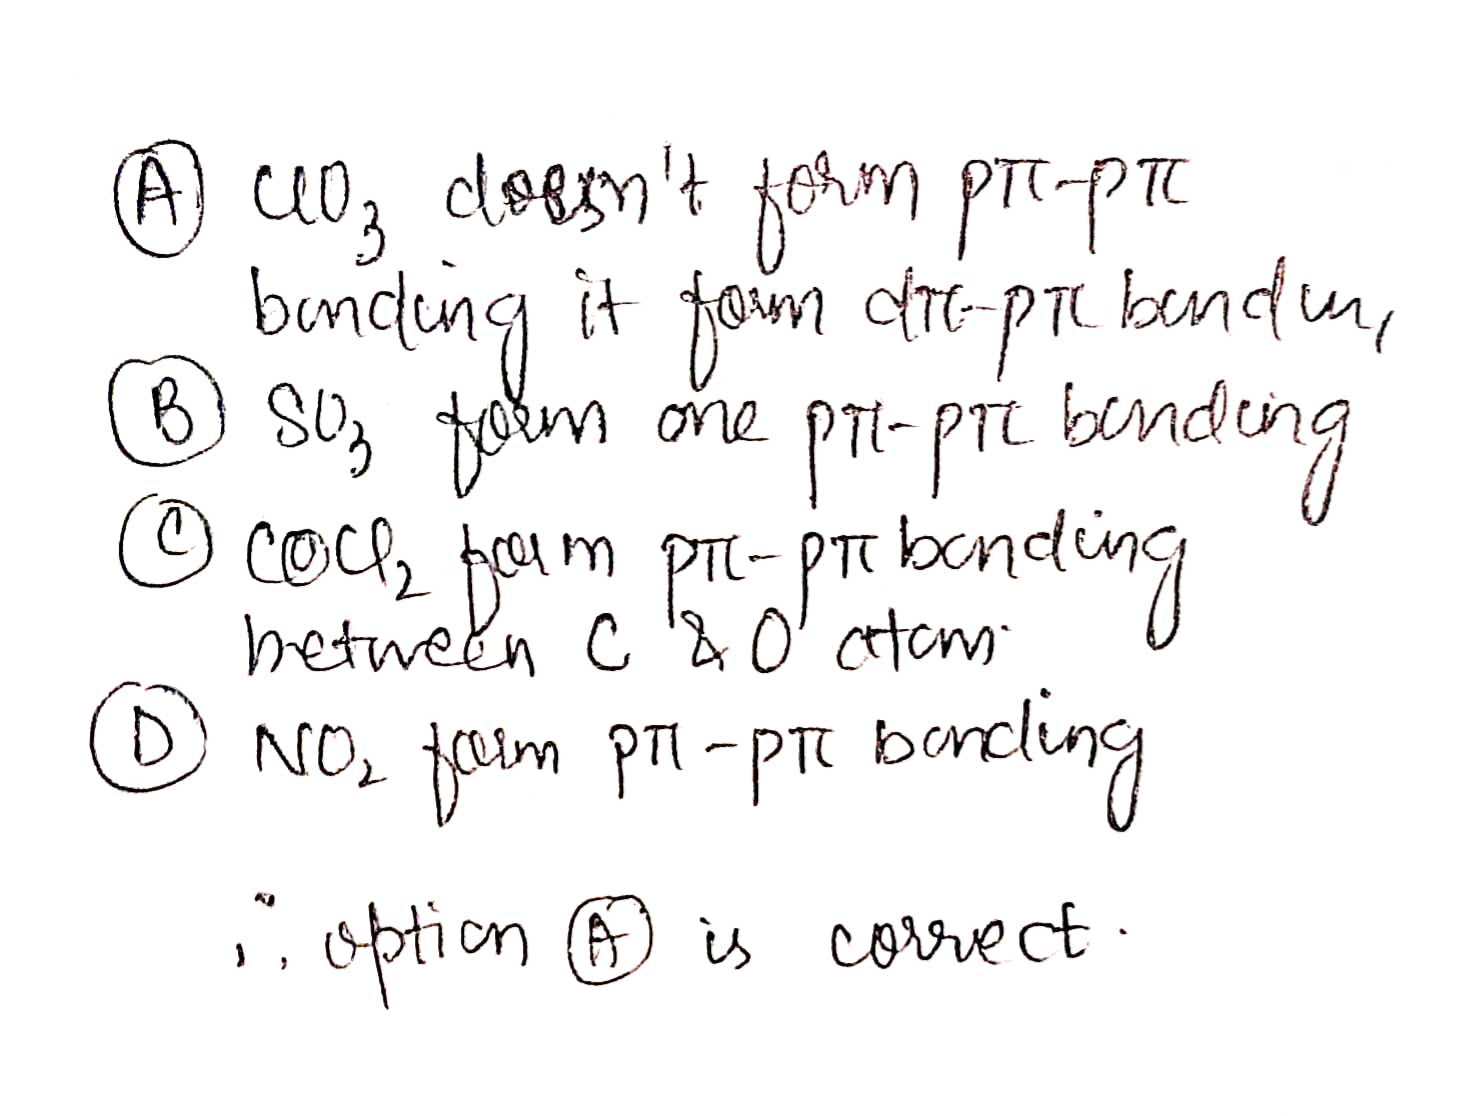 (A) ClO₃ doesn't form pπ-pπ
bonding it form dπ-pπ bondin,
(B) SO₃ form one pπ-pπ bonding
(C) COCl₂ form pπ-pπ bonding
between C & O atom.
(D) NO₂ form pπ-pπ bonding
∴ option (A) is correct.